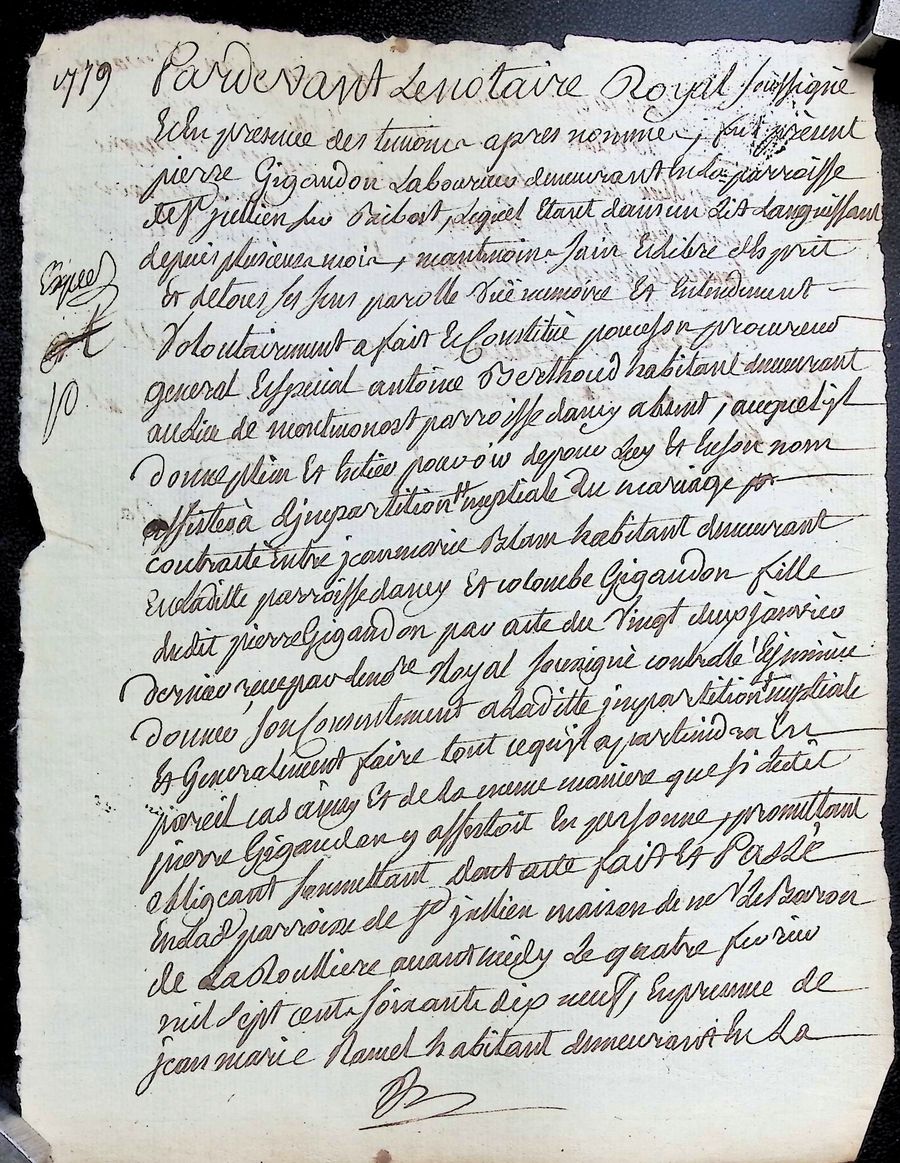 1779 Pardevant Le notaire Royal soussigné
Et En presence des temoins apres nommés, fut present
pierre Gigaudon Laboureur demeurant En La parroisse
de St jullien sur Bibost, Lequel Etant dans un Lit Languissant
depuis plusieurs mois, neantmoins sain Et Libre d'Esprit
Expeé Et de tous ses sens parolle Vüe memoire Et Entendement
Volontairement a fait Et Constitüé pour son procureur
general Et special antoine Berthoud habitant demeurant
au Lieu de montmonost parroisse dancy absent, auquel yl
donne plein Et Entier pouvoir de pour Luy Et En son nom
assister à L'jmpartition nuptiale du mariage
contracté Entre jean marie Blanc habitant demeurant
En Laditte parroisse dancy Et colombe Gigaudon fille
dudit pierre Gigaudon par acte du Vingt deux janvier
dernier, reçu par Le nore Royal soussigné controlé Et jnsinüé
donner son Consentement a Laditte jmpartition nuptiale
Et Generalement faire tout ce qu'jl apartiendra En
pareil cas ainsy Et de La meme maniere que si Ledit
pierre Gigaudon y assistoit En personne, promettant
obligeant soumettant dont acte fait Et Passé
En Lad parroisse de St jullien maison de mr Le Baron
de La Roulliere avant midy Le quatre fevrier
mil sept cent soixante dix neuf, En presence de
jean marie Ramel habitant demeurant En La